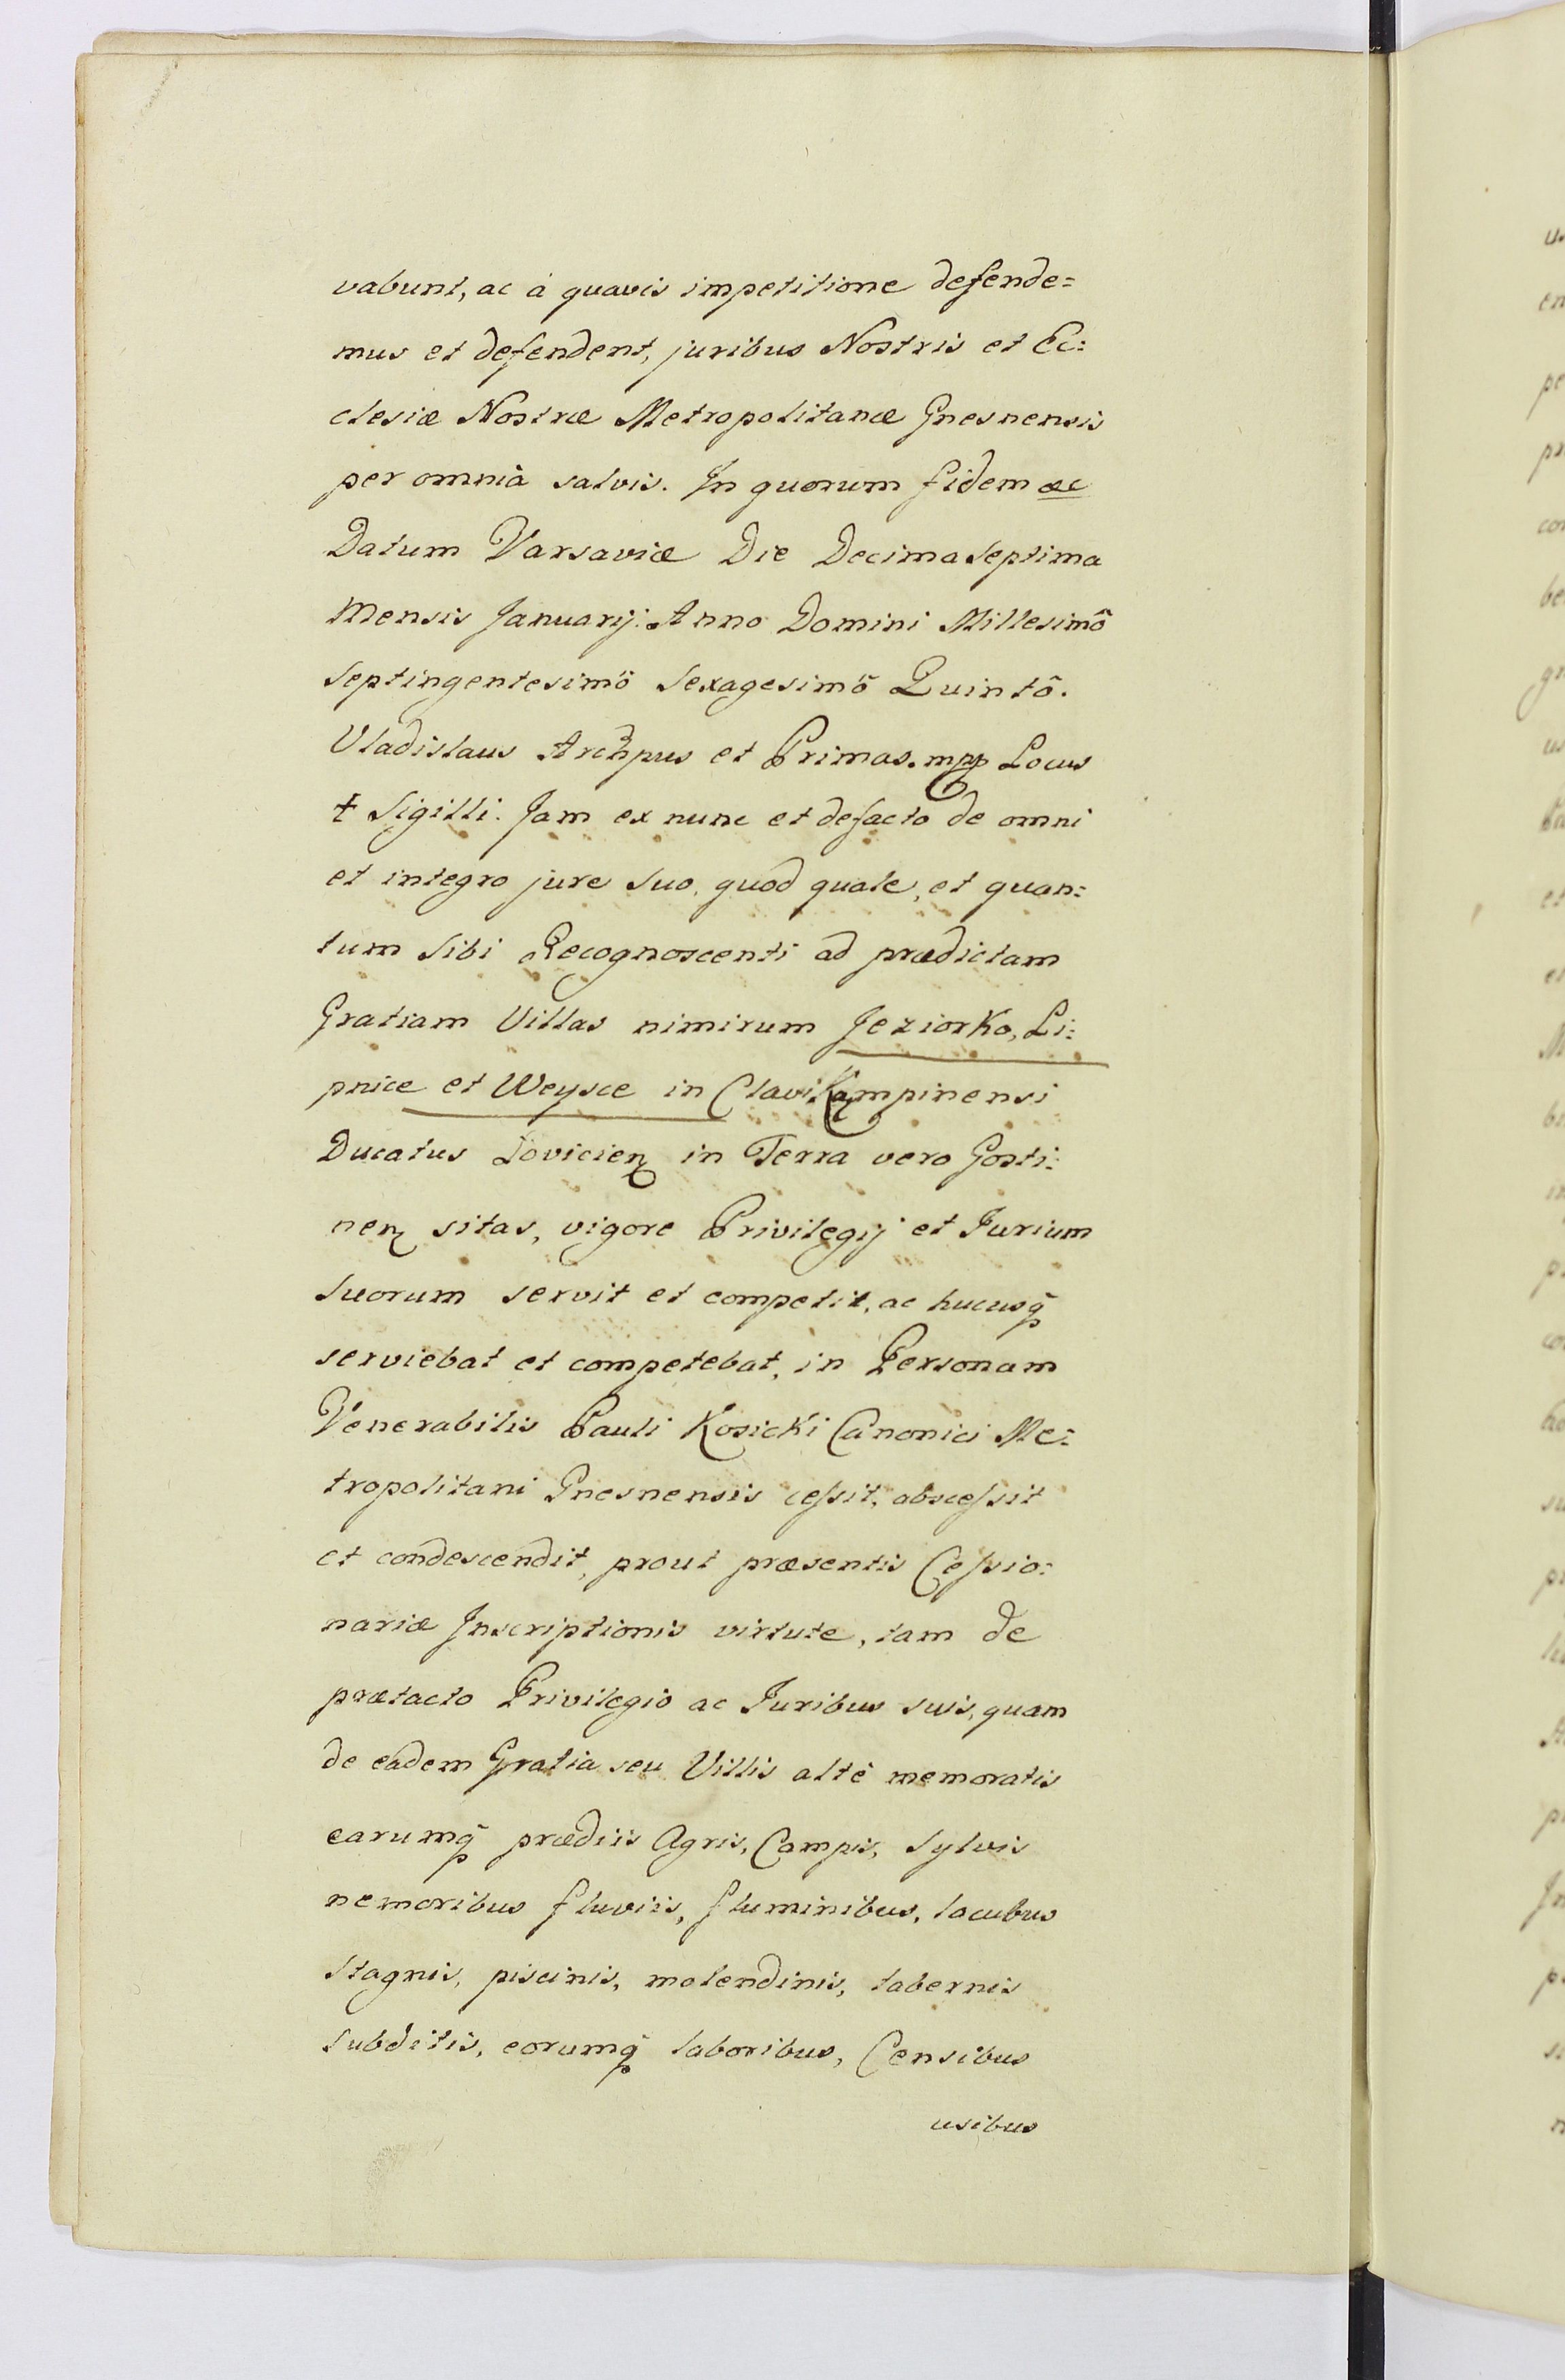 vabunt, ac à quavis impetitione defende=
mus et defendent, juribus Nostris et Ec=
clesiæ Nostræ Metropolitanæ Gnesnensis
per omnià salvis. In quorum fidem &c
Datum Varsaviæ Die Decima Septima
Mensis Januarij. Anno Domini Millesimô
Septingentesimô Sexagesimô Quintô.
Vladislaus Archpus et Primas. mpp Locus
† Sigilli. Jam ex nunc et defacto de omni
et integro jure Suo, quod quale, et quan=
tum Sibi Recognoscenti ad prædictam
Gratiam Villas nimirum Jeziorko, Li=
pnice et Weysce in Clavi Kampinensi
Ducatus Łovicien in Terra vero Gosti=
nen sitas, vigore Privilegij et Jurium
Suorum servit et competit, ac hucusq̃
serviebat et competebat, in Personam
Venerabilis Pauli Kosicki Canonici Me=
tropolitani Gnesnensis ceſsit, absceſsit
et condescendit, prout præsentis Ceſsio=
nariæ Inscriptionis virtute, tam de
prætacto Privilegio ac Juribus suis, quam
de eadem Gratia seu Villis altè memoratis
earumq̃ prædiis Agris, Campis, Sylvis
nemoribus fluviis, fluminibus, lacubus
Stagnis, piscinis, molendinis, tabernis
Subditis, eorumq̃ laboribus, Censibus
usibus